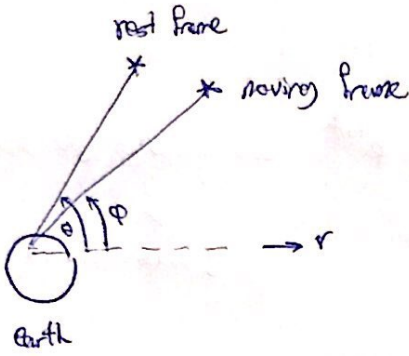 rest frame
moving frame
θ
φ
v
earth